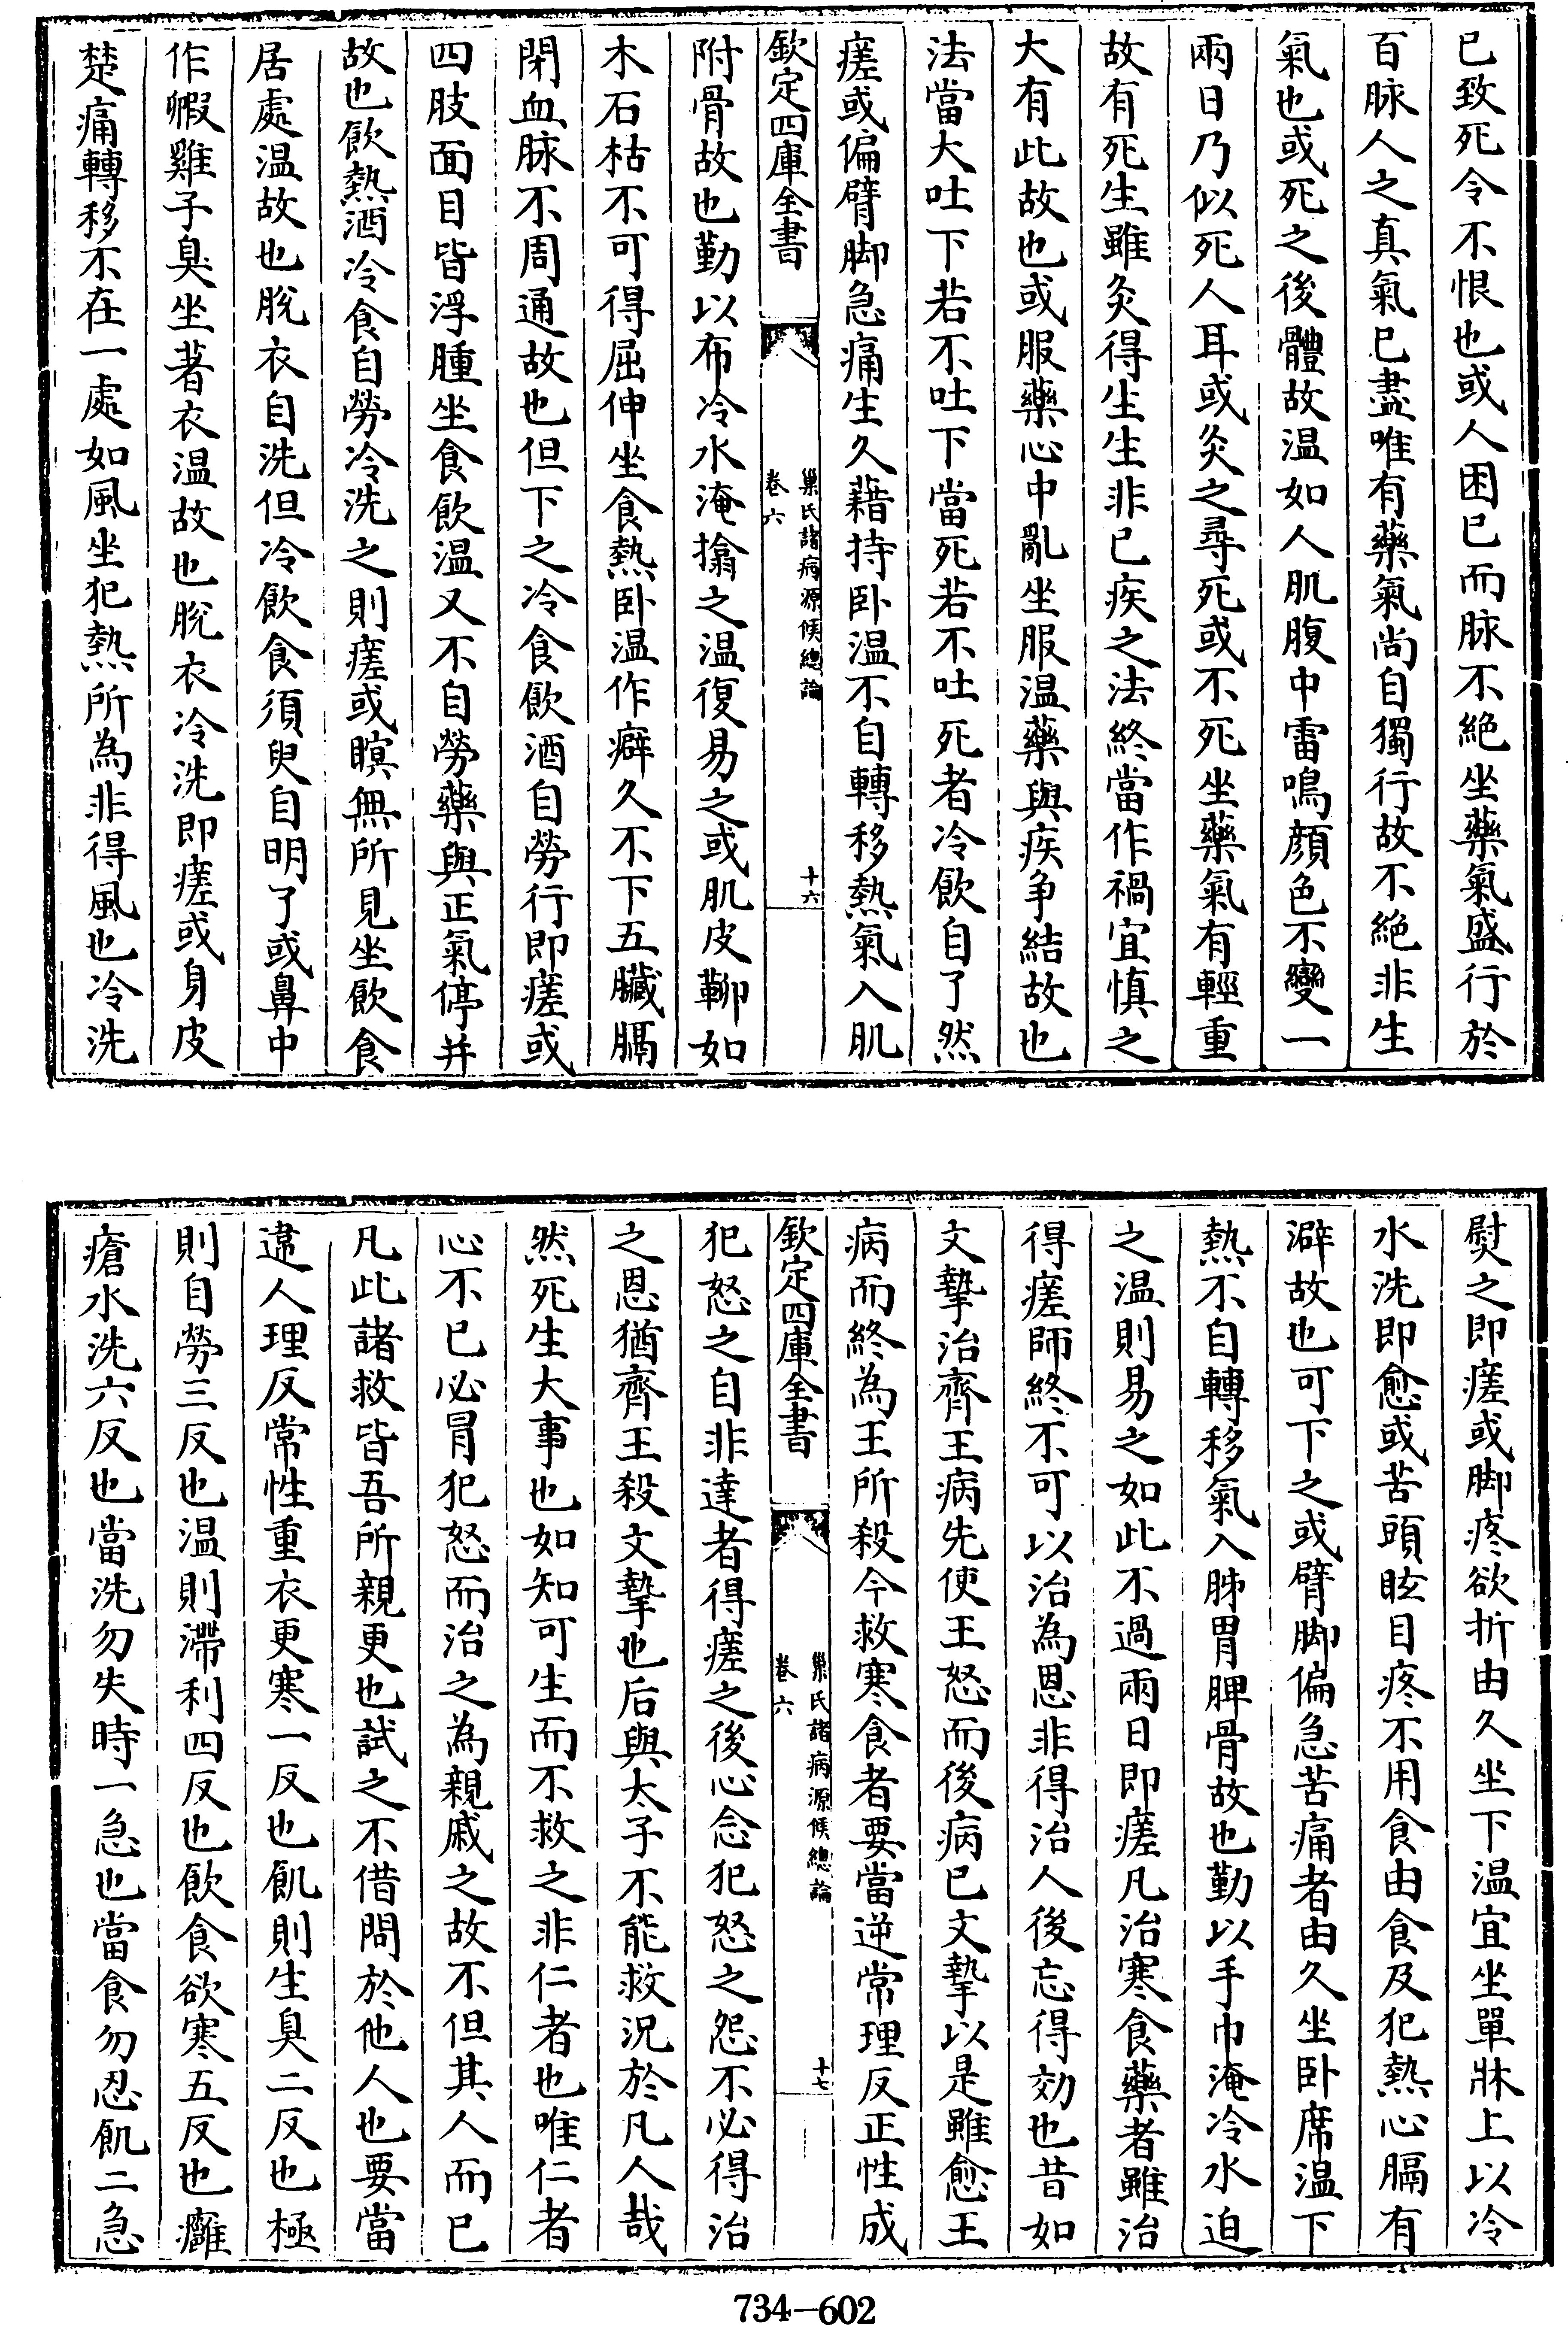 已致死令不恨也或人困已而脉不絶坐藥氣盛行於
百脉人之真氣已盡唯有藥氣尚自獨行故不絶非生
氣也或死之後體故温如人肌腹中雷鳴顔色不變一
兩日乃似死人耳或灸之尋死或不死坐藥氣有輕重
故有死生雖灸得生生非已疾之法終當作禍宜慎之
大有此故也或服藥心中亂坐服温藥與疾争結故也
法當大吐下若不吐下當死若不吐死者冷飲自了然
瘥或偏臂脚急痛生久藉持卧温不自轉移熱氣入肌
欽定四庫全書
巢氏諸病源候總論
卷六
十六
附骨故也勤以布冷水淹搶之温復易之或肌皮䩕如
木石枯不可得屈伸坐食熱卧温作癖久不下五臟膈
閉血脉不周通故也但下之冷食飲酒自勞行即瘥或
四肢面目皆浮腫坐食飲温又不自勞藥與正氣停并
故也飲熱酒冷食自勞冷洗之則瘥或瞑無所見坐飲食
居處温故也脫衣自洗但冷飲食須臾自明了或鼻中
作㲉雞子臭坐著衣温故也脫衣冷洗即瘥或身皮
楚痛轉移不在一處如風坐犯熱所為非得風也冷洗
熨之即瘥或脚疼欲折由久坐下温宜坐單牀上以冷
水洗即愈或苦頭眩目疼不用食由食及犯熱心膈有
澼故也可下之或臂脚偏急苦痛者由久坐卧席温下
熱不自轉移氣入肺胃脾骨故也勤以手巾淹冷水迫
之温則易之如此不過兩日即瘥凡治寒食藥者雖治
得瘥師終不可以治為恩非得治人後忘得効也昔如
文摯治齊王病先使王怒而後病已文摯以是雖愈王
病而終為王所殺今救寒食者要當逆常理反正性成
欽定四庫全書
巢氏諸病源候總論
卷六
十七
犯怒之自非達者得瘥之後心念犯怒之怨不必得治
之恩猶齊王殺文摯也后與太子不能救況於凡人哉
然死生大事也如知可生而不救之非仁者也唯仁者
心不已必冒犯怒而治之為親戚之故不但其人而已
凡此諸救皆吾所親更也試之不借問於他人也要當
違人理反常性重衣更寒一反也飢則生臭二反也極
則自勞三反也温則滯利四反也飲食欲寒五反也癰
瘡水洗六反也當洗勿失時一急也當食勿忍飢二急
734-602